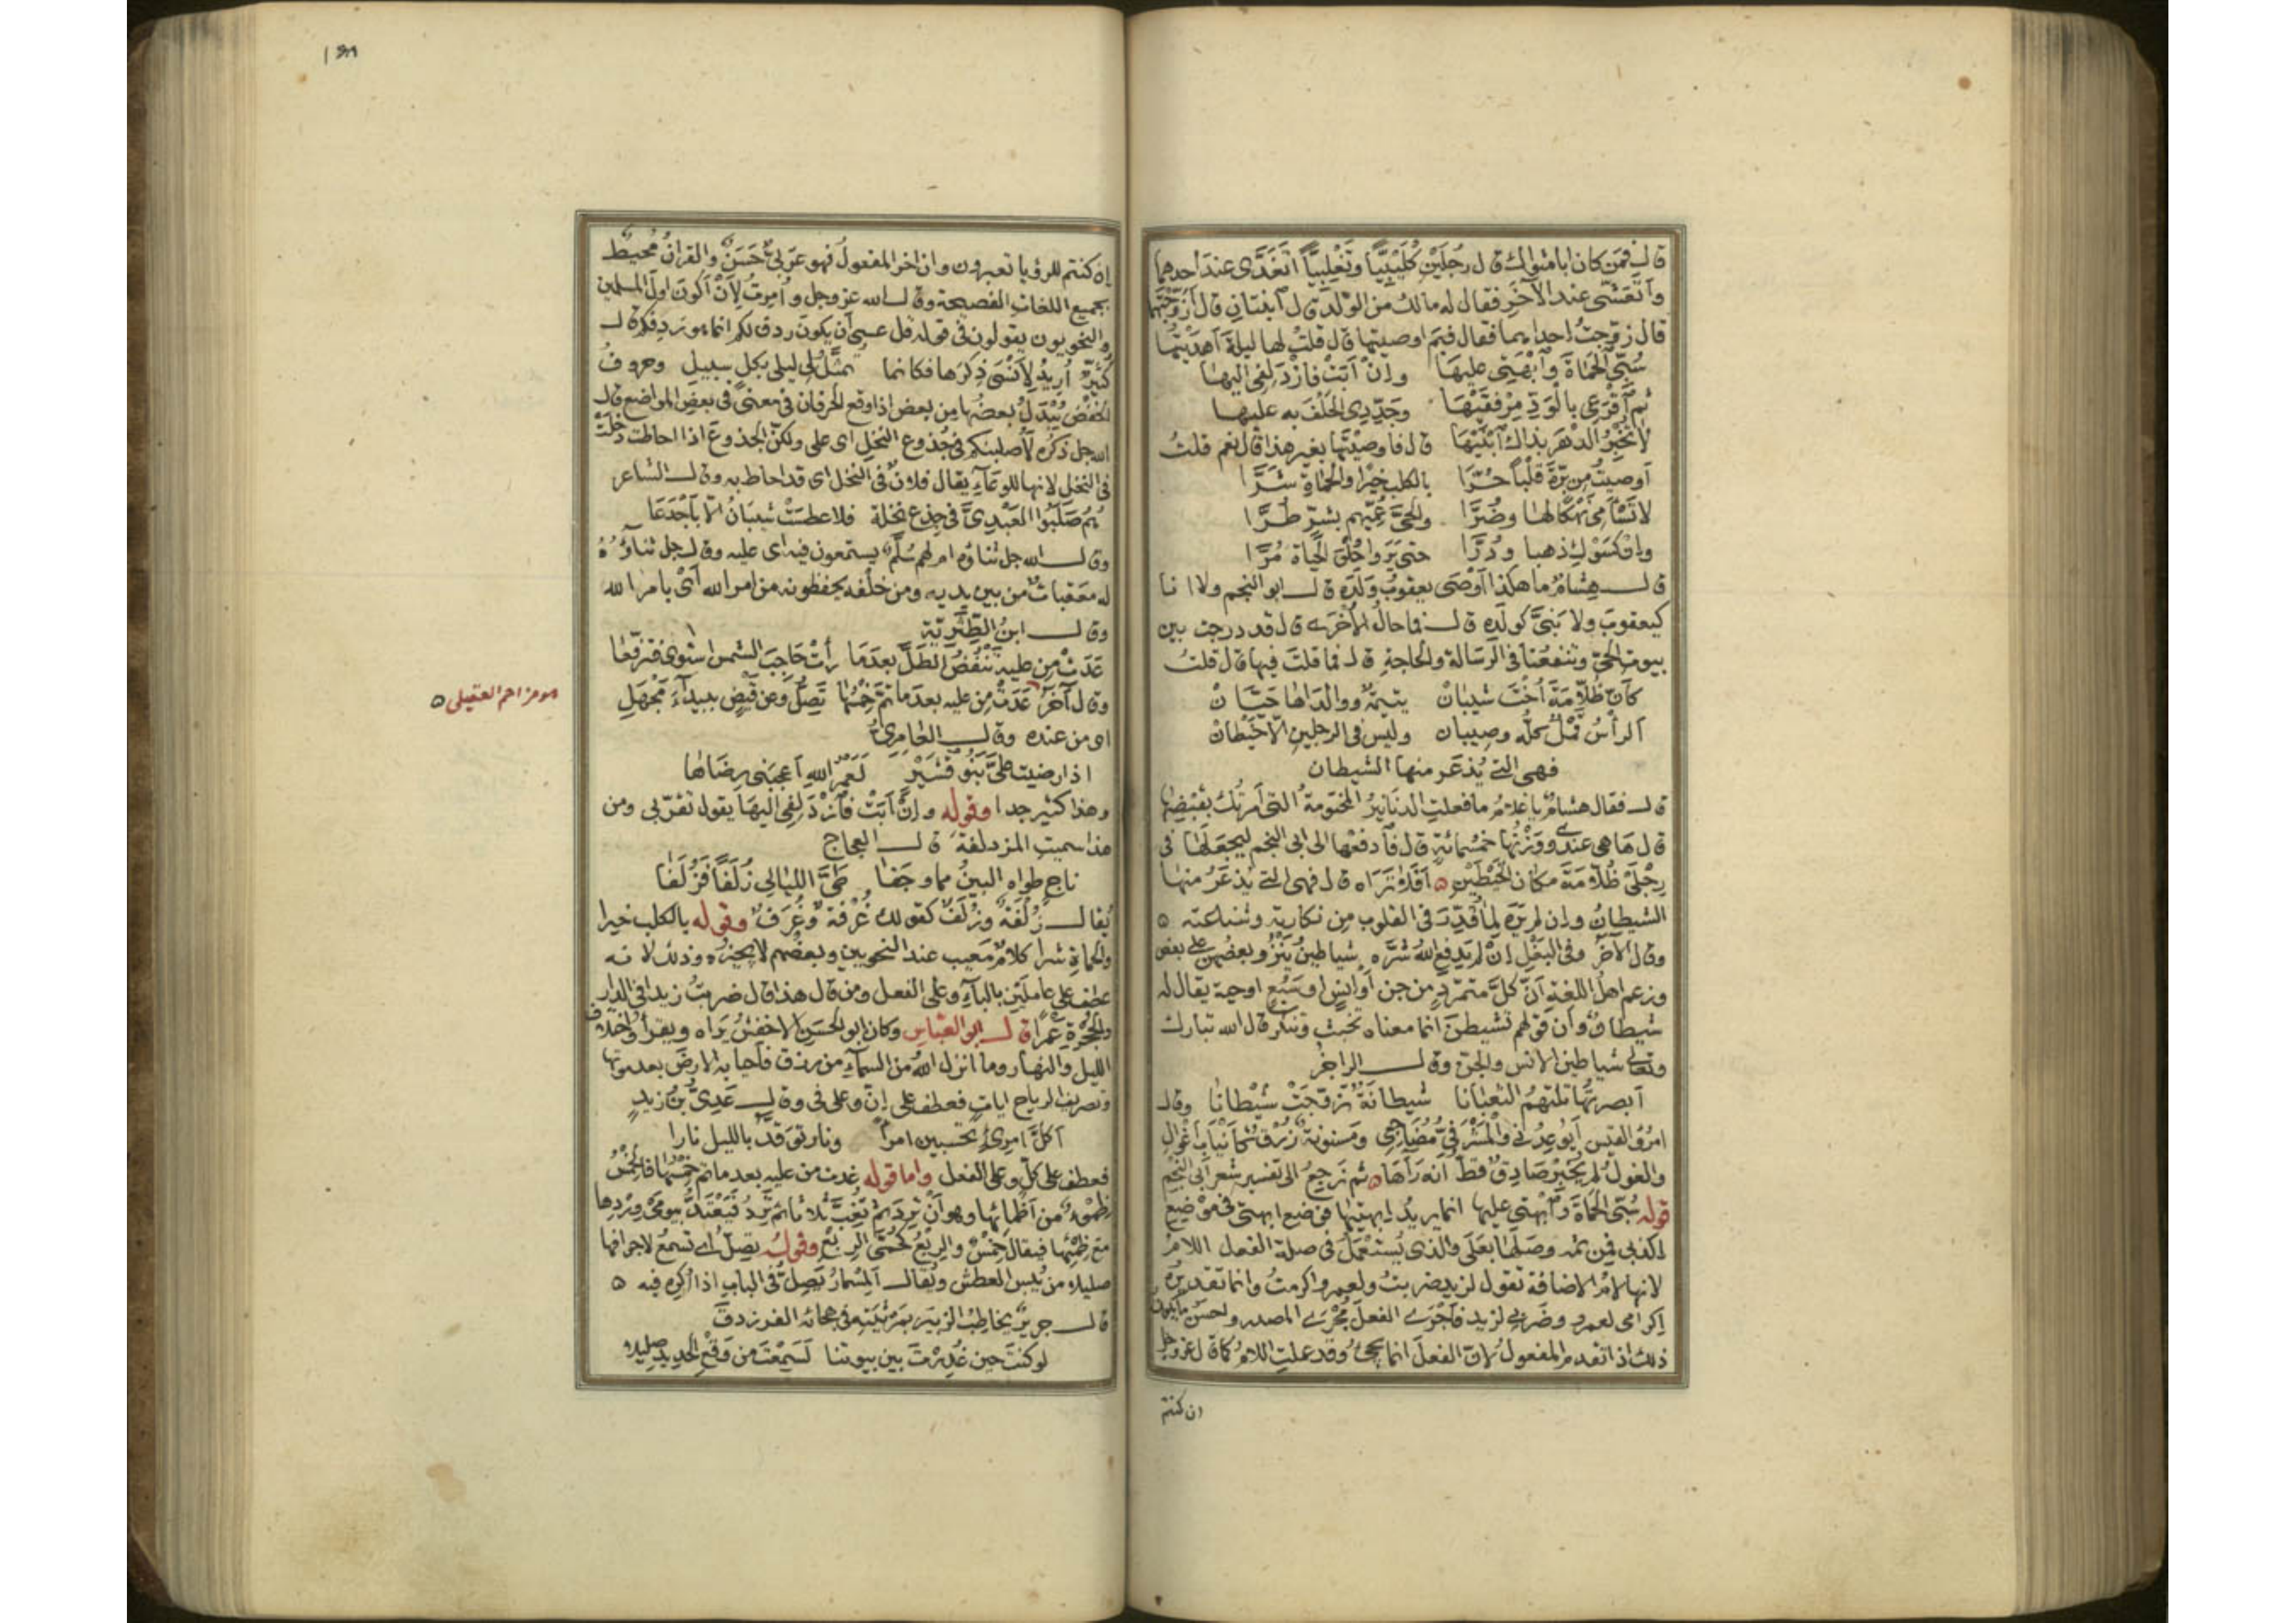 قال فمن كان ابا مثواك قال رجلين كلبيّا وتغلبيّا اتغدّى عند احدهما
واتعشّى عند الآخر فقال له مالك من الولد قال ابنتان قال أزوّجتهما
قال زوّجت احداهما فقال فبم اوصيتها قال قلت لها ليلة اهديتها
سُبّي الحماة وابهتي عليها وإن أبت فازدلفي اليها
ثم اقرعي بالود مرفقيها وجدّدي الحلف به عليها
لا تخبر الدهر بذاك ابنيها قال فاوصيتها بغير هذا قال نعم قلت
اوصيت من برّة قلبا حرّا بالكلب خيرا والحماة شرّا
لا تسأمي نهكا لها وضرّا والحيّ عُمّيهم بشرّ طُرّا
وإن كسوك ذهبا ودُرّا حتى يروا حلو الحياة مُرّا
قال هشام ما هكذا اوصى يعقوب ولده قال ابو النجم ولا انا
كيعقوب ولا بنيّ كولده قال فما حال الأخرى قال قد درجت بين
بيوت الحيّ وتنفعنا في الرسالة والحاجة قال فما قلت فيها قال قلت
كأنّ ظلّامة أخت شيبان يتيمة ووالداها حيّان
الرأس قمل كله وصيبان وليس في الرجلين الّا خيطان
فهي التي يُذعر منها الشيطان
قال فقال هشام يا غلام ما فعلت الدنانير المختومة التي أمرتك بقبضها
قال ها هي عندي ووزنها خمسمائة قال فادفعها الى ابي النجم ليجعلها في
رجلي ظلّامة مكان الخيطين ه أفلا تراه قال فهي التي يذعر منها
الشيطان وإن لم يره لما قُدّر في القلوب من نكارته وشناعته ه
وقال الآخر وفي البغل إن لم يدفع الله شره شياطين ينزو بعضهن على بعض
وزعم اهل اللغة أنّ كلّ متمرّد من جن أو إنس او سبع او حية يقال له
شيطان وأن قولهم تشيطن انما معناه تخبث وتنكر قال الله تبارك
وتعالى شياطين الانس والجن وقال الراجز
أبصرتها تلتهم الثعبانا شيطانة تزوّجت شيطانا وقال
امرؤ القيس أيوعدني والمشرفيّ مضاجعي ومسنونة زرق كأنياب أغوال
والغول لم يخبر صادق قط أنه رآها ه ثم نرجع الى تفسير شعر أبي النجم
قوله سُبّي الحماة وابهتي عليها انما يريد ابهتيها فوضع ابهتي في موضع
اكذبي فمن ثم وصلها بعلى والذي يُستعمل في صلة الفعل اللام
لانها لام الاضافة تقول لزيد ضربت ولعمرو اكرمت وانما تقديره
إكرامي لعمرو وضربي لزيد فأجرى الفعل مجرى المصدر واحسن ما يكون
ذلك اذا تقدم المفعول لان الفعل انما يجيء وقد عملت اللام كما قال عز وجل
ان كنتم
إن كنتم للرؤيا تعبرون وان اخر المفعول فهو عربي حسن والقرآن محيط
بجميع اللغات الفصيحة وقال الله عز وجل وأمرت لأن أكون اول المسلمين
والنحويون يقولون في قوله قل عسى أن يكون ردف لكم انما هو ردفكم قال
كثيّر أريد لأنسى ذكرها فكانما تمثّل لي ليلى بكل سبيل وحروف
الخفض يُبدل بعضها من بعض اذا وقع الحرفان في معنى في بعض المواضع قال
الله جل ذكره لأصلبنكم في جذوع النخل اى على ولكن الجذوع اذا احاطت دخلت
في النخل لانها للوعاء يقال فلان في النخل اى قد احاط به وقال الشاعر
هُم صلبوا العبديّ في جذع نخلة فلا عطست شيبان الّا بأجدعا
وقال الله جل ثناؤه ام لهم سُلّم يستمعون فيه اى عليه وقال جل ثناؤه
له معقبات من بين يديه ومن خلفه يحفظونه من امر الله أيْ بامر الله
وقال ابن الطثرية
غدت من عليه تنفض الطلّ بعدما رأت حاجب الشمس استوى فترفّعا
وقال آخر غدت من عليه بعدما تمّ خمسها تصلّ وعن قيض ببيداء مجهل
هو مزاحم العقيلي ه
اى من عنده وقال العامريّ
اذا رضيت عليّ بنو قشير لعمر الله اعجبني رضاها
وهذا كثير جدا وقوله وإن أبت فازدلفي اليها يقول تقرّبي ومن
هذا سميت المزدلفة قال العجاج
ناج طواه الأين مما وجفا طيّ الليالي زُلفا فزُلفا
يُقال زُلفة وزُلف كقولك غُرفة وغُرف وقوله بالكلب خيرا
والحماة شرا كلام معيب عند النحويين وبعضهم لا يجيزه وذلك لانه
عطف على عاملين بالباء وعلى الفعل ومن قال هذا قال ضربت زيدا في الدار
والحجرة عمرا قال ابو العباس وكان ابو الحسن الاخفش يراه ويقرأ واختلاف
الليل والنهار وما انزل الله من السماء من رزق فأحيا به الارض بعد موتها
وتصريف الرياح آيات فعطف على إنّ وعلى في وقال عديّ بن زيد
أكلّ امرىء تحسبين امرأ ونار توقّد بالليل نارا
فعطف على كلّ وعلى الفعل واما قوله غدت من عليه بعد ما تم خمسها فالخمس
ظمء من أظمائها وهو أن ترد ثم تغبّ ثلاثا ثم ترد فيعتدّ بيومي وردها
مع ظمئها فيقال خمس والربع كحمّى الربع وقوله تصلّ اى تسمع لاجوافها
صليلا من يُبس العطش ويُقال المسمار يصلّ في الباب اذا اكره فيه ه
قال جرير يخاطب الزبير بمرثيته في هجائه الفرزدق
لو كنت حين غُررت بين بيوتنا لسمعت من وقع الحديد صليلا